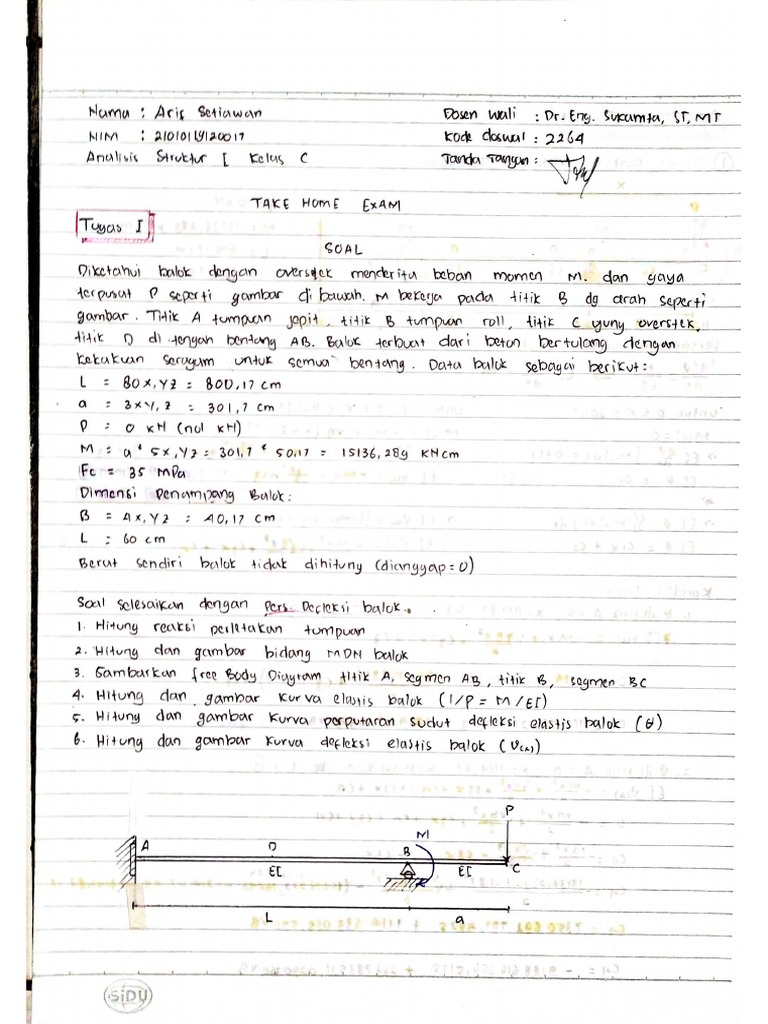 Nama : Aris Setiawan
Dosen Wali : Dr. Eng. Sukamta, ST, MT
NIM : 21010119120017
Kode doswal : 2264
Analisis Struktur I Kelas C
Tanda Tangan :
TAKE HOME EXAM
Tugas I
SOAL
Diketahui balok dengan overstek menderita beban momen M. dan gaya
terpusat P seperti gambar di bawah. M bekerja pada titik B dg arah seperti
gambar. Titik A tumpuan jepit, titik B tumpuan roll, titik C yung overstek,
titik D di tengah bentang AB. Balok terbuat dari beton bertulang dengan
kekakuan seragam untuk semua bentang. Data balok sebagai berikut:
L = 80X,YZ = 800,17 cm
a = 3XY,Z = 301,7 cm
P = 0 kN (nol kN)
M = a * 5X,YZ = 301,7 * 50,17 = 15136,289 KNcm
Fc = 35 MPa
Dimensi Penampang Balok:
B = 4X,YZ = 40,17 cm
L = 60 cm
Berat sendiri balok tidak dihitung (dianggap = 0)
Soal selesaikan dengan Pers. Defleksi balok.
1. Hitung reaksi perletakan tumpuan
2. Hitung dan gambar bidang MDN balok
3. Gambarkan free Body Diagram titik A, segmen AB, titik B, segmen BC
4. Hitung dan gambar kurva elastis balok (1/P = M/EI)
5. Hitung dan gambar kurva perputaran sudut defleksi elastis balok (θ)
6. Hitung dan gambar kurva defleksi elastis balok (v(x))
P
M
A D B C
EI EI
L a
SiDU